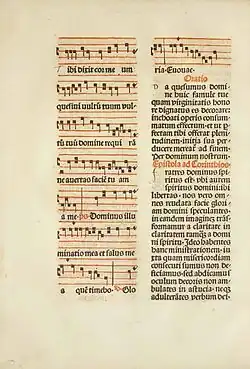 ibi dixit cor me um
quesiui vultũ tuum vul-
tũ tuũ domine requi rã
ne auertas faciẽ tu am
a me. ps. Dominus illu
minatio mea et salus me
a quẽ timebo. Glo
ria. Euouae.
Oratio
Da quesumus domi
ne huic famule tue
quam virginitatis hono
re dignatus es decorare:
inchoati operis consum-
matum effectum: et ut p
fectam tibi offerat pleni-
tudinem: initia sua per-
ducere mereat̃ ad finem.
Per dominum nostrum.
Epistola ad Corinthios
Fratres dominus spi-
ritus est: ubi autem
spiritus domini: ibi
libertas. nos vero om-
nes reuelata facie glori-
am domini speculantes:
in eandem imaginẽ trãs-
formamur a claritate in
claritatem tamq̃ a domi
ni spiritu. Ideo habentes
hanc ministrationem: iu
xta quam misericordiam
consecuti sumus non de-
ficiamus: sed abdicamus
occulta decoris non am-
bulantes in astucia: neq;
adulterãtes verbum dei: